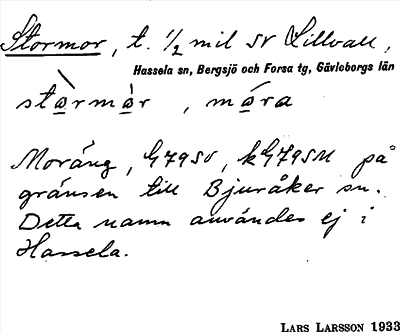 Stormor, t. 1/2 mil SV Lillvall,
Hassela sn, Bergsjö och Forsa tg, Gävleborgs län
stormor, mora
Moräng, G79SV, kG79SM på
gränsen till Bjuråker sn.
Detta namn användes ej i
Hassela.
LARS LARSSON 1933